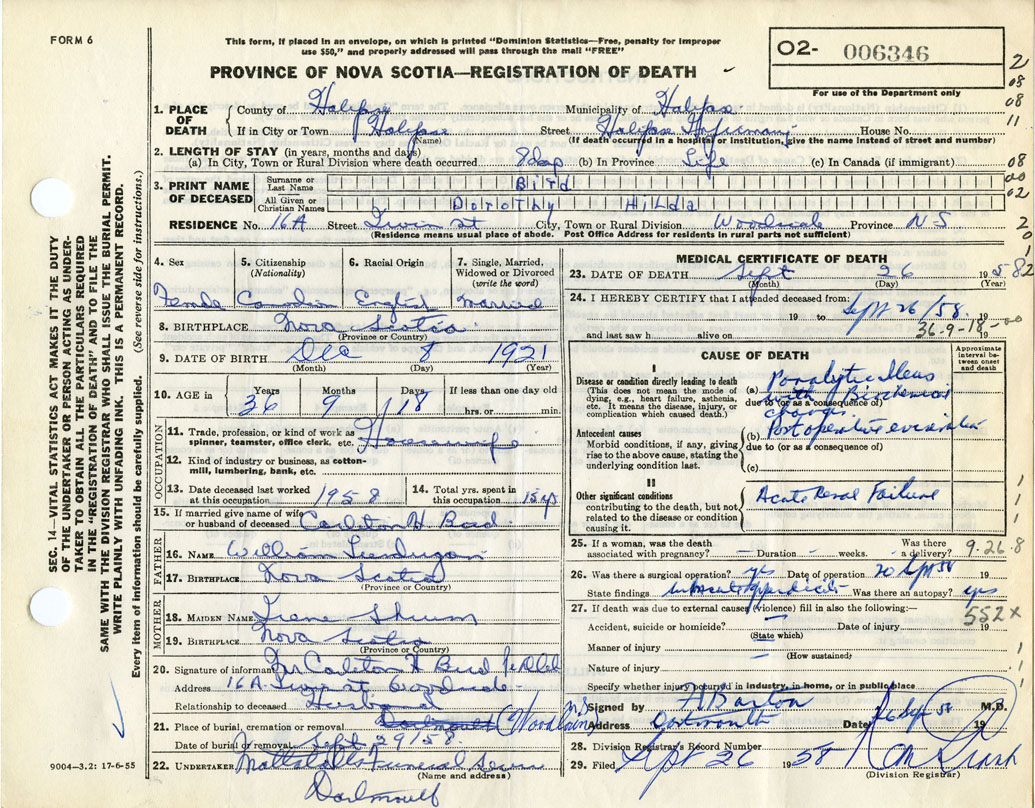 FORM 6
This form, if placed in an envelope, on which is printed "Dominion Statistics—Free, penalty for improper
use $50," and properly addressed will pass through the mail "FREE"
PROVINCE OF NOVA SCOTIA—REGISTRATION OF DEATH
O2- 006346
For use of the Department only
1. PLACE OF DEATH
County of Halifax Municipality of Halifax
If in City or Town Halifax Street Halifax Infirmary House No.
(Name) (If death occurred in a hospital or institution, give the name instead of street and number)
2. LENGTH OF STAY (in years, months and days)
(a) In City, Town or Rural Division where death occurred 8 days (b) In Province Life (c) In Canada (if immigrant)
3. PRINT NAME OF DECEASED
Surname or Last Name Bird
All Given or Christian Names Dorothy Hilda
RESIDENCE No. 16A Street City, Town or Rural Division Woodside Province N S
(Residence means usual place of abode. Post Office Address for residents in rural parts not sufficient)
4. Sex Female
5. Citizenship (Nationality) Canadian
6. Racial Origin English
7. Single, Married, Widowed or Divorced (write the word) Married
8. BIRTHPLACE Nova Scotia
(Province or Country)
9. DATE OF BIRTH Dec 8 1921
(Month) (Day) (Year)
10. AGE in Years 36 Months 9 Days 18 If less than one day old
hrs. or min.
OCCUPATION
11. Trade, profession, or kind of work as
spinner, teamster, office clerk, etc. Housewife
12. Kind of industry or business, as cotton-
mill, lumbering, bank, etc.
13. Date deceased last worked
at this occupation 1958
14. Total yrs. spent in
this occupation 15 yrs
15. If married give name of wife
or husband of deceased Carleton H Bird.
FATHER
16. NAME William
17. BIRTHPLACE Nova Scotia
(Province or Country)
MOTHER
18. MAIDEN NAME Irene
19. BIRTHPLACE Nova Scotia
(Province or Country)
20. Signature of informant Carleton H Bird
Address 16A St Woodside
Relationship to deceased Husband
21. Place of burial, cremation or removal Dartmouth (Woodlawn)
Date of burial or removal Sept 29/58.
22. UNDERTAKER Mattatalls Funeral
(Name and address)
Dartmouth
9004—3.2: 17-6-55
SEC. 14—VITAL STATISTICS ACT MAKES IT THE DUTY
OF THE UNDERTAKER OR PERSON ACTING AS UNDER-
TAKER TO OBTAIN ALL THE PARTICULARS REQUIRED
IN THE "REGISTRATION OF DEATH" AND TO FILE THE
SAME WITH THE DIVISION REGISTRAR WHO SHALL ISSUE THE BURIAL PERMIT.
WRITE PLAINLY WITH UNFADING INK. THIS IS A PERMANENT RECORD.
Every item of information should be carefully supplied. (See reverse side for instructions.)
MEDICAL CERTIFICATE OF DEATH
23. DATE OF DEATH Sept 26 1958
(Month) (Day) (Year)
24. I HEREBY CERTIFY that I attended deceased from:
19 to Sept 26/58. 19
and last saw h alive on 36-9-18-00
CAUSE OF DEATH
Approximate interval between onset and death
I
Disease or condition directly leading to death
(This does not mean the mode of
dying, e.g., heart failure, asthenia,
etc. It means the disease, injury, or
complication which caused death.)
(a) Paralytic Ileus
with Biochemical
due to (or as a consequence of)
changes.
Antecedent causes
Morbid conditions, if any, giving
rise to the above cause, stating the
underlying condition last.
(b) Post operative evisceration
due to (or as a consequence of)
(c)
II
Other significant conditions
contributing to the death, but not
related to the disease or condition
causing it.
Acute Renal Failure
25. If a woman, was the death
associated with pregnancy? — Duration — weeks.
Was there
a delivery? 9.26.8
26. Was there a surgical operation? yes Date of operation 20 Sept 58 19
State findings Subacute Appendicitis Was there an autopsy? yes
27. If death was due to external causes (violence) fill in also the following:—
552x
Accident, suicide or homicide? Date of injury 19
(State which)
Manner of injury
(How sustained)
Nature of injury
Specify whether injury occurred in industry, in home, or in public place
Signed by H Barton M.D.
Address Dartmouth Date 26 Sept 58 19
28. Division Registrar's Record Number
29. Filed Sept 26 1958
(Division Registrar)
2
08
08
11
08
00
02
2
0
1
82
1
1
1
1
1
1